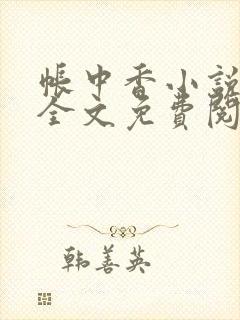 帳中香小說
全文免費閱
韩善英